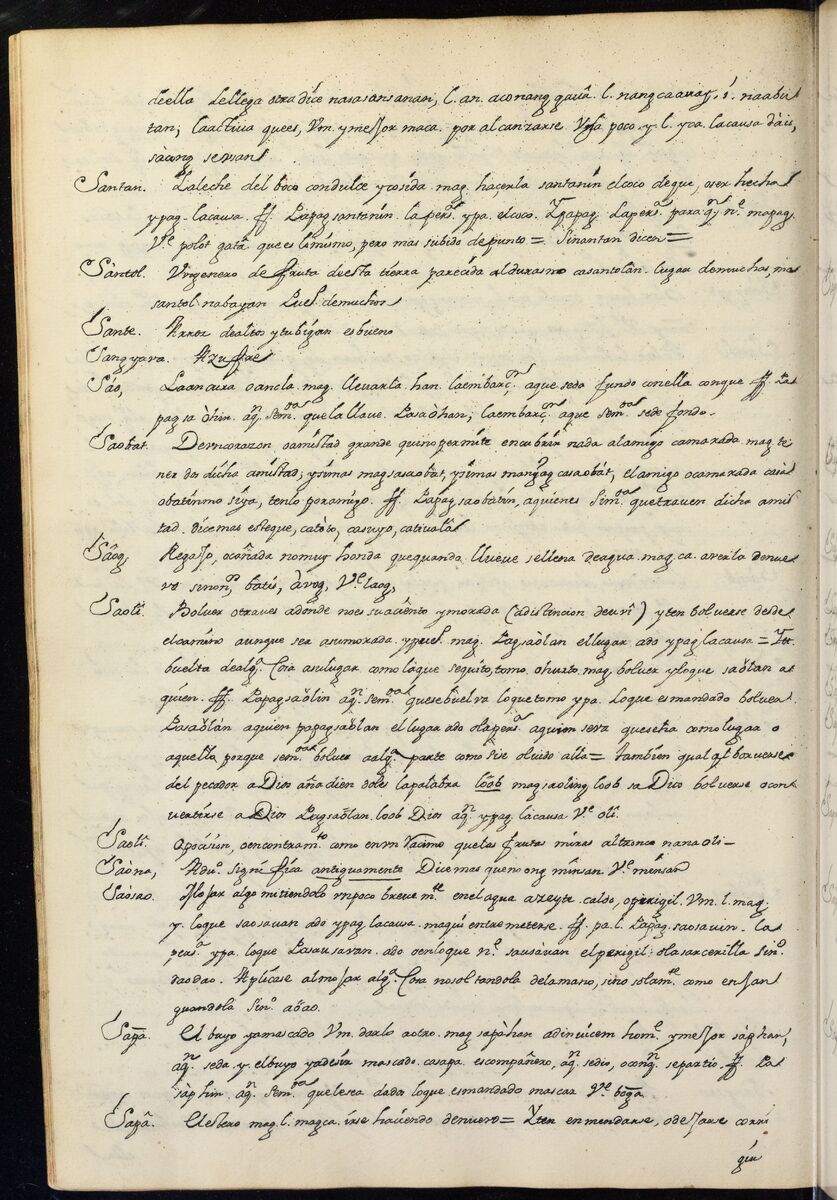 deella le llega otra dice nasasansanan, l. an. aconang gauâ. l. nang caauay, i. naabu
tan; laactiua que es, Vm. y mejor maca. por alcanzarse poco y l. yca. la causa
sàcong sensan
Santan. La leche del coco con dulce y cosida. mag. haçerla santanin el coco de que, o ser hecha
y pag. la causa. ff. Papagsantanin. la persᵃ. ypa. el coco. Papag. la persᵃ. para qⁿ nᵉ. mapag.
Vᵉ polot gatâ que es lo mismo, pero mas subido de punto = Sinantan dicen =
Sàntol. Un genero de fruta de esta tierra parecida al durasno casantolan. lugar de muchos, ma
santol nabayan Puel. de muchos
Sante. Arroz de altos y tubigan es bueno
Sangyaua. Azufre
Sáo, La ancora o ancla. mag. lleuarla han. la embarçᵒⁿ. a que se da fundo con ella con que ff. Pa
pagsa òhin. aqⁿ. semᵒᵃ. que la lleue. Pasaòhan; la embarçᵒⁿ. a que semᵒᵃ. se de fondo.
Saobat. De un corazon o amistad grande qui no permite encubrir nada al amigo camarada. mag. te
ner dos dicha amistad; y si mas magsasaobat, y si mas mangag casaobát, el amigo o camarada casa
obatinmo siya, tenlo por amigo. ff. Papagsaobatin, a quienes Simᵒᵃ. que trauen dicha amis
tad. dice mas esteque, catòto, casuyo, catiualâ
Saôg, Regajo, o cañada no muy honda que quando llueve se llena de agua. mag. ca. auerla de nue
vo sinonᵒ. batis, àvog, Vᵉ laog,
Saolî. Boluer otraues adonde no es su aciento y morada (a distincion de uvî) y ten boluerse desde
el camino aunque sea a su morada. y puel. mag. Pagsaòlan el lugar ado ypag la causa = Yt.
buelta de algᵃ. Cosa a su lugar como lo que se quito, tomo. o hurto. mag. boluer y lo que saòlan a
quien. ff. Papagsaòlin aqⁿ. semᵒᵃ que se buelva lo que tomo ypa. Lo que es mandado boluer.
Pasaòlán a quien papagsaòlan el lugar ado o la persᵃ a quien seva que esta como lugar o
aquella porque semᵒᵃ boluer a algᵃ parte como si se oluido alla = tambien qualqᵃ boluerse
del pecador a Dios añadiendole la palabra loob magsaoling loob sa Dios boluerse o con
uertirse a Dios Pagsaòlan. loob Dios aqⁿ. ypag la causa Vᵉ olî.
Saolî. Oposicion, o encontramᵗᵒ como en un racimo que las frutas miras al tronco nanaoli -
Saòna, Aduᵒ. Significa antiguamente Dice mas que noong minsan. Vᵉ minsan
Saòsao. Mojar algo metiendolo un poco breuemᵗᵉ en el agua azeyte caldo, o perigil. Vm. l. mag.
y. lo que saosauan ado ypag la causa. maqui entremeterse. ff. pa. l. Papag. saosauin. la
persᵃ ypa. lo que Pasausavan. ado o en lo que nᵉ. sausàuan el perigil o la sarcerilla Sinᵒ.
daodao. Aplicase al mojar algᵃ Cosa no soltandola de la mano, sino solamᵗᵉ como enjua
guandola Sinᵒ. aoao.
Sapa. El buyo ya mascado Vm. darlo a otro. mag sapàhan adinuicem homᵉ. y mejor sàphan,
aqⁿ. seda y. el buyo ya desta mascado. casapa. es compañero, aqⁿ. sedio, o conqⁿ. se partio. ff. Pa
sàphin aqⁿ. semᵒᵃ que le sea dada lo que es mandado mascar Vᵉ bòga.
Sapâ. El estero mag. l. magca. irse haciendo de nuevo = Yten enmendarse, o dejarse corri
gir